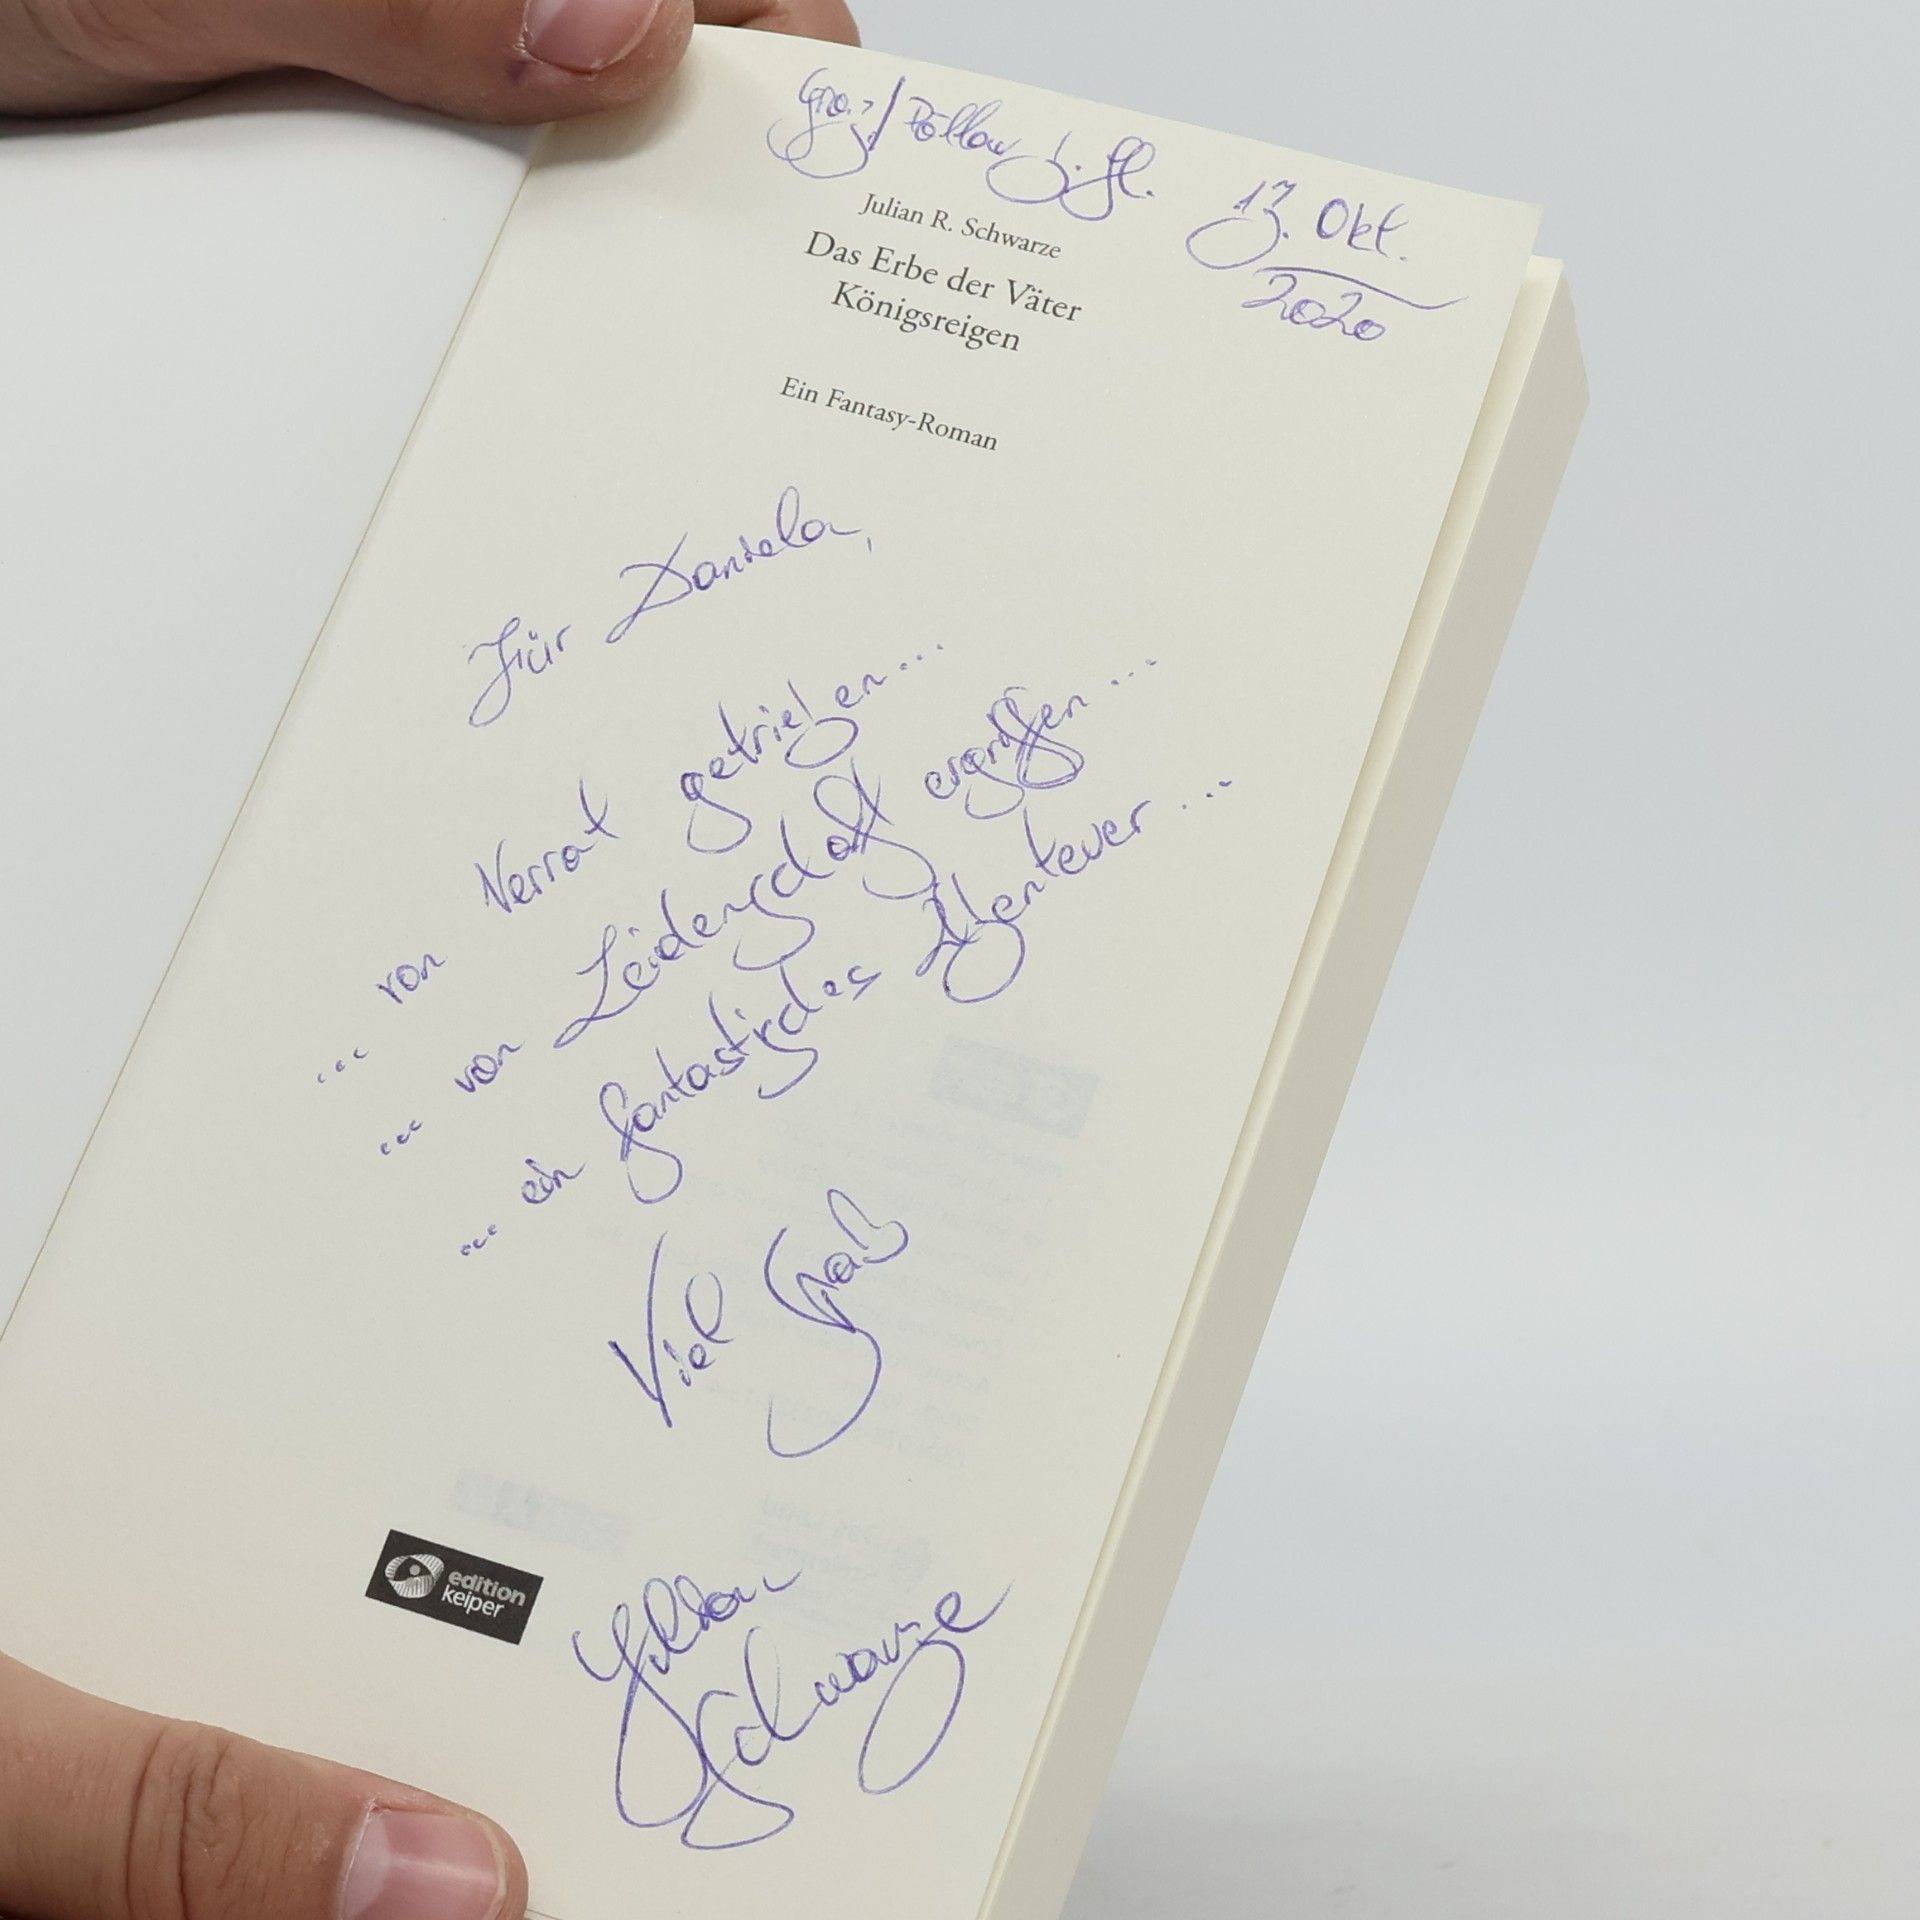 Graz / Pöllau
13. Okt.
2020
Julian R. Schwarze
Das Erbe der Väter
Königsreigen
Ein Fantasy-Roman
Für Daniela,
... von Verrat getrieben ...
... von Leidenschaft ergriffen ...
... ein fantastisches Abenteuer ...
Viel Spaß
edition
keiper
Julian
Schwarze